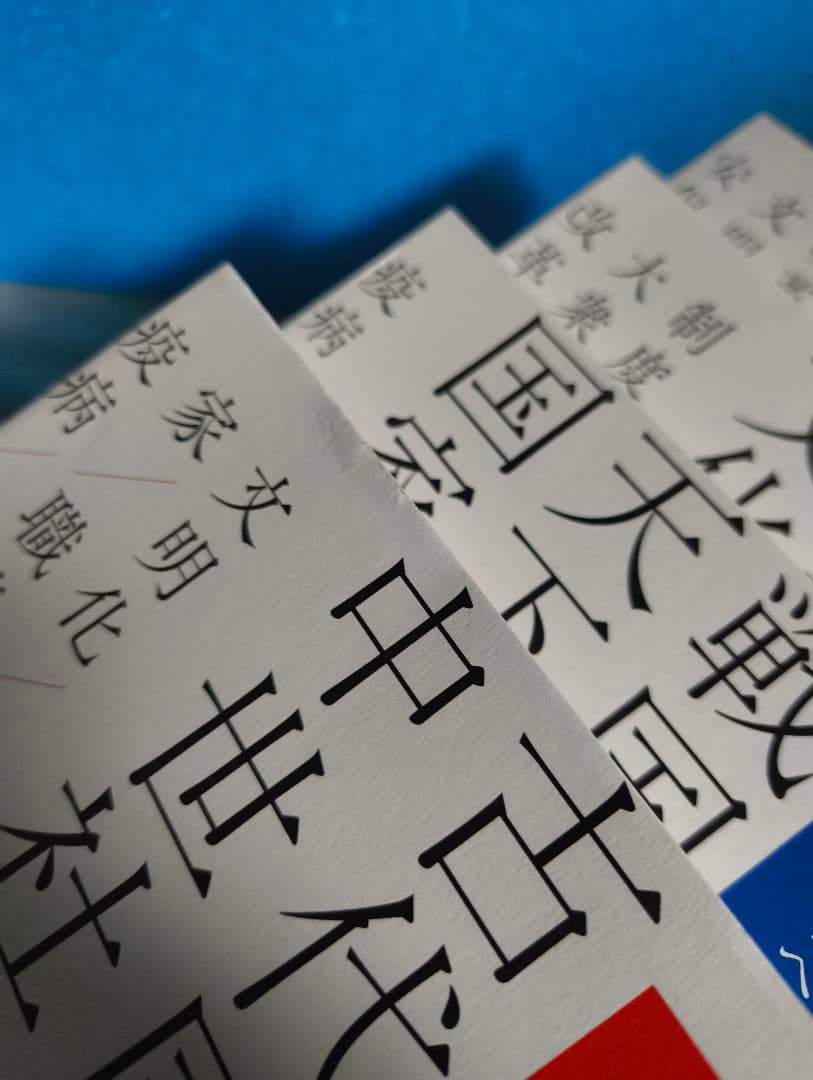 古代
中世社
文明化
家
職
疫病
戦国
天下
国家
疫病
制度
大衆
改革
文明